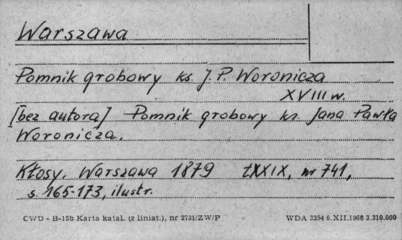 Warszawa
Pomnik grobowy ks. J. P. Woronicza
XVIII w.
[bez autora] Pomnik grobowy ks. Jana Pawła
Woronicza.
Kłosy. Warszawa 1879 t XXIX, nr 741,
s 165-173, ilustr.
CWD - B-15b Karta katal. (z liniat.), nr 2731/ZW/P WDA 3254 6.XII.1960 2.310.000